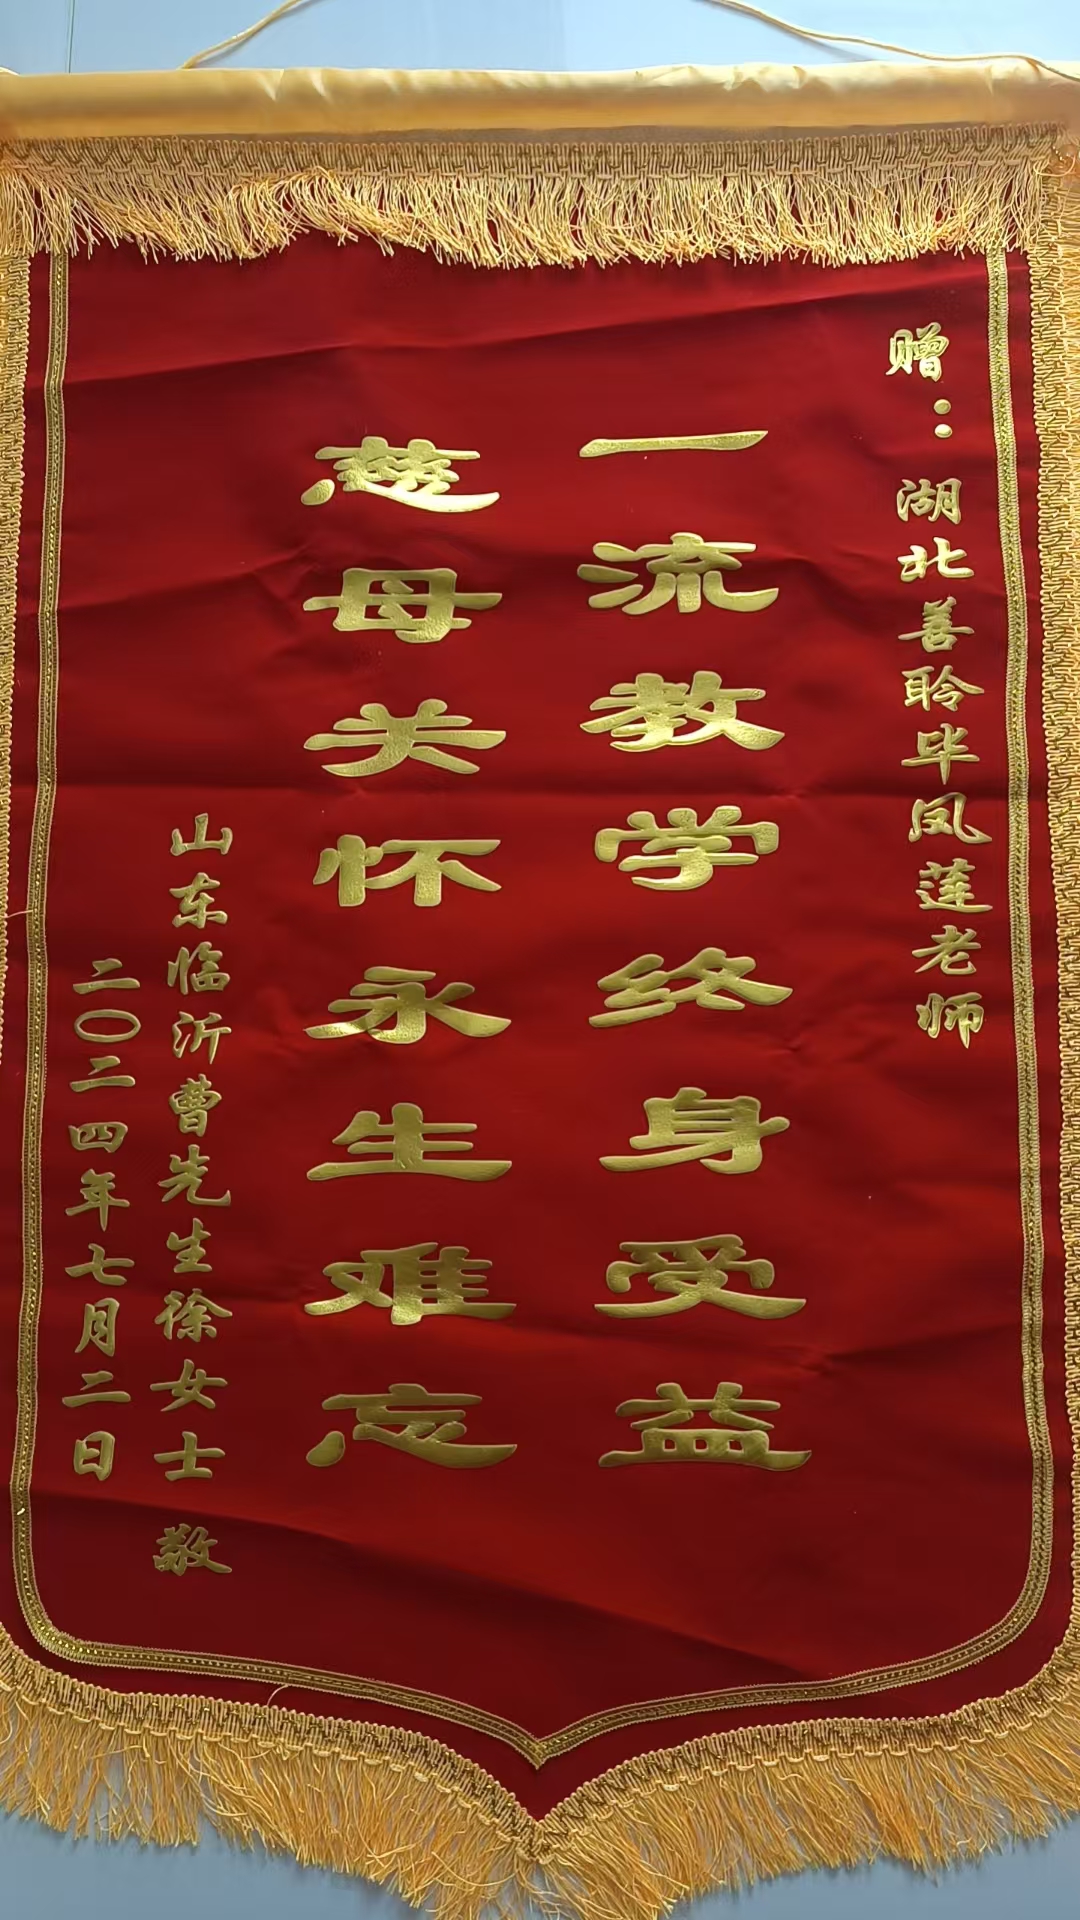 赠：湖北善聆毕凤莲老师
一流教学终身受益
慈母关怀永生难忘
山东临沂曹先生徐女士 敬
二〇二四年七月二日